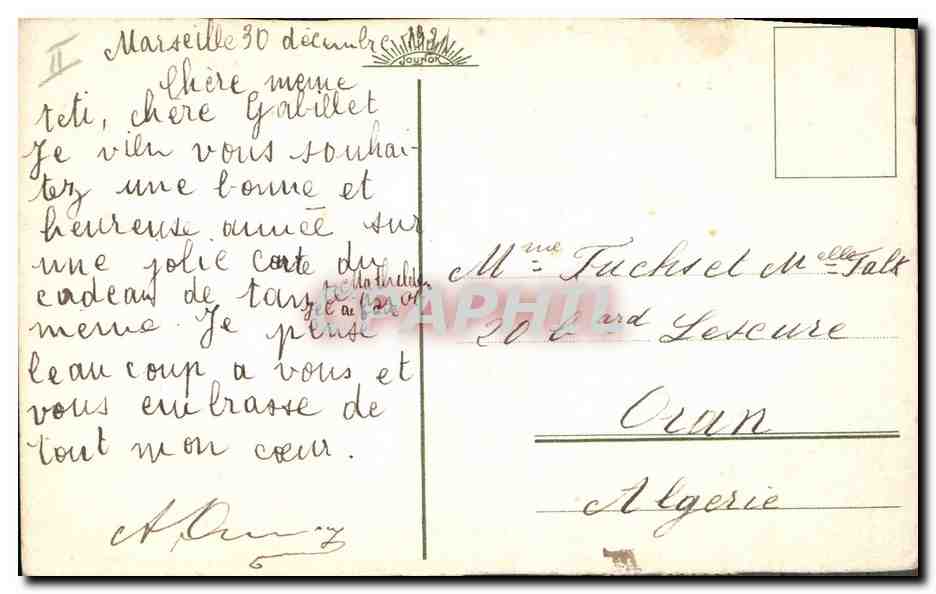 II
Marseille 30 décembre 1931
JOUNOK
Chère meme
teti, chère Gabillet
Je vien vous souhai-
tez une bonne et
heureuse année sur
une jolie carte du
cadeau de tante Mathilde
même. Je pense
beaucoup a vous et
vous embrasse de
tout mon cœur.
Mme Fuchs et Melle Falk
20 bard Lescure
Oran
Algerie
CPAPHIL